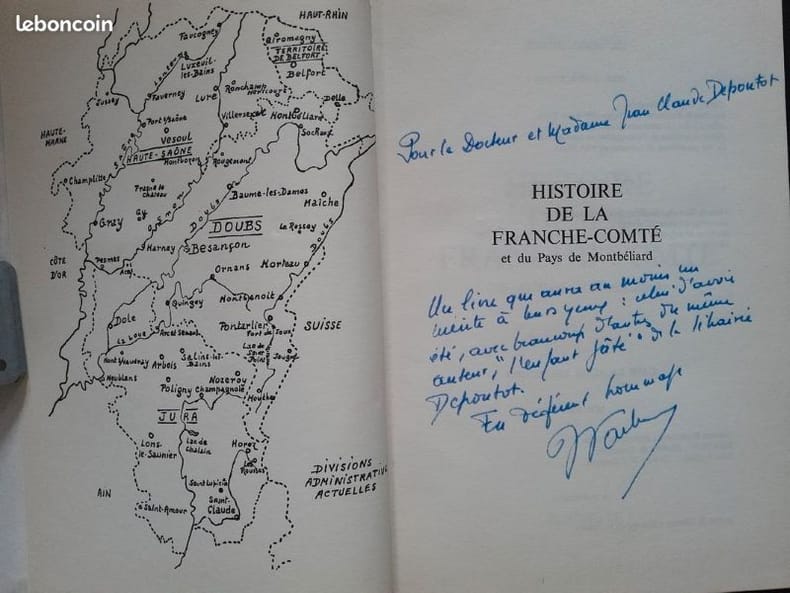 leboncoin
HAUT-RHIN
Faucogney
Giromagny
TERRITOIRE
DE BELFORT
Belfort
Luxeuil-
les-Bains
Lanterne
Ronchamp
Héricourt
Delle
Jussey
Faverney
Lure
HAUTE-
MARNE
Port s/Saône
Villersexel
Montbéliard
Vesoul
HAUTE-SAÔNE
Montbozon
Rougemont
Champlitte
Saône
Baume-les-Dames
Maîche
Gy
Ognon
Doubs
Gray
DOUBS
Le Russey
Doubs
CÔTE
D'OR
Pesmes
Marnay
Besançon
Morteau
Ornans
Quingey
Montbenoit
Dole
La Loue
Arc et Senans
Pontarlier
Fort de Joux
SUISSE
Mont s/Vaudrey
Arbois
Salins-les-
Bains
Lac de
Saint
Point
Jougne
Neublans
Poligny
Champagnole
Nozeroy
Mouthe
JURA
Lons-
le-Saunier
Lac de
Chalain
Morez
Les
Rousses
DIVISIONS
ADMINISTRATIVES
ACTUELLES
AIN
Saint Lupicin
Saint-
Claude
Saint-Amour
Pour le Docteur et Madame Jean Claude Depoutot
HISTOIRE
DE LA
FRANCHE-COMTÉ
et du Pays de Montbéliard
Un livre qui aura au moins un
mérite à leurs yeux : celui d'avoir
été, avec beaucoup d'autres du même
auteur, "l'enfant gâté" de la librairie
Depoutot.
En déférent hommage